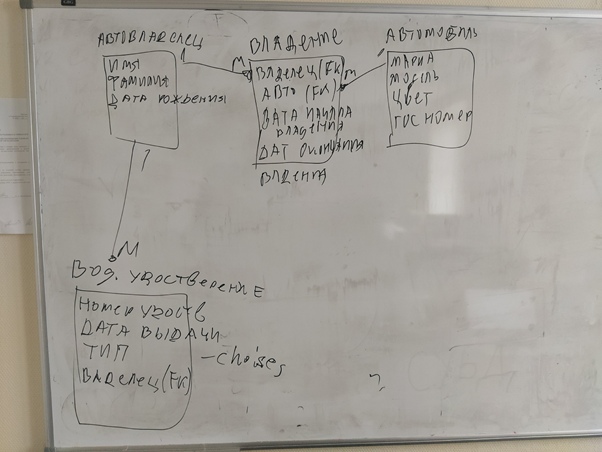 АВТОВЛАДЕЛЕЦ
1
ИМЯ
ФАМИЛИЯ
ДАТА РОЖДЕНИЯ
1
ВЛАДЕНИЕ
М
ВЛАДЕЛЕЦ (FK)
М
АВТО (FK)
ДАТА НАЧАЛА
ВЛАДЕНИЯ
ДАТ ОКОНЧАНИЯ
ВЛАДЕНИЯ
АВТОМОБИЛЬ
1
МАРКА
МОДЕЛЬ
ЦВЕТ
ГОС НОМЕР
М
ВОД. УДОСТВЕРЕНИЕ
НОМЕР УДОСТВ
ДАТА ВЫДАЧИ
ТИП
- choises
ВЛАДЕЛЕЦ (FK)